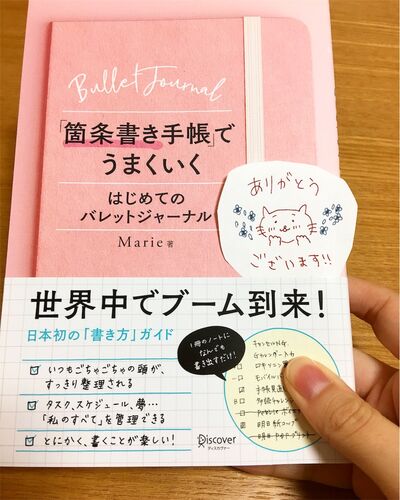 Bullet Journal
「箇条書き手帳」で
うまくいく
はじめての
バレットジャーナル
Marie 著
ありがとう
ございます!!
世界中でブーム到来!
日本初の「書き方」ガイド
1冊のノートに
なんでも
書き出すだけ!
いつもごちゃごちゃの頭が、
すっきり整理される
タスク、スケジュール、夢…
「私のすべて」を管理できる
とにかく、書くことが楽しい!
手帳見直
明日紙コップ
Discover
ディスカヴァー